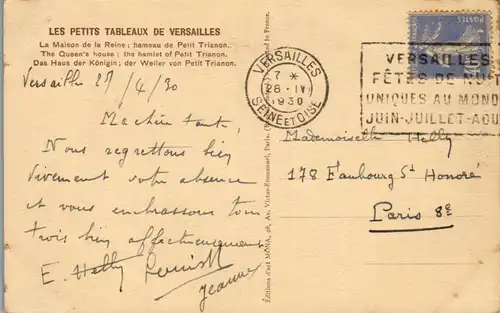 LES PETITS TABLEAUX DE VERSAILLES
La Maison de la Reine ; hameau de Petit Trianon.
The Queen's house ; the hamlet of Petit Trianon.
Das Haus der Königin ; der Weiler von Petit Trianon.
Versailles 27/4/30
Ma chère tante,
Nous regrettons bien
vivement votre absence
et vous embrassons tous
trois bien affectueusement
E. Helly
Jeanne
Éditions d'art MONA, 28, Av. Victor-Emmanuel, Paris.
in France.
POSTES
VERSAILLES
7 *
28 - IV
1930
SEINE ET OISE
VERSAILLES
FÊTES DE NUIT
UNIQUES AU MOND
JUIN-JUILLET-AOU
Mademoiselle Helly
178 Faubourg St Honoré
Paris 8e